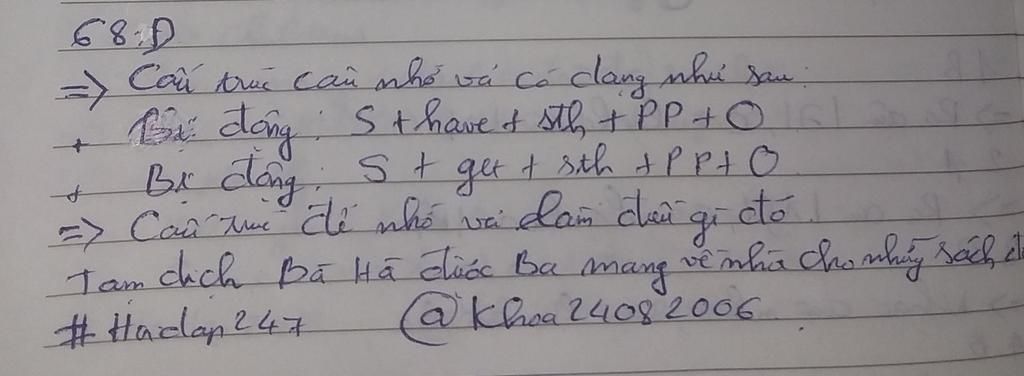 68: D
=> Cấu trúc cần nhớ và có dạng như sau:
+ Bị động: S + have + sth + PP + O
+ Bị động: S + get + sth + PP + O
=> Cấu trúc để nhớ và làm điều gì đó.
Tạm dịch Bà Hà được Ba mang về nhà cho những sách
# Hoclap247 @Khoa24082006